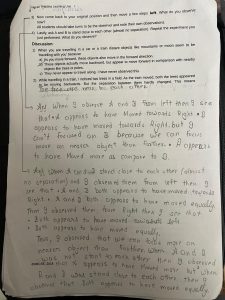 9) Now come back to your original position and then move a few steps left. What do you observe now?
10) All students should take turns to be the observer and note their own observations.
11) Lastly ask A and B to stand close to each other (almost no separation). Repeat the experiment you just performed. What do you observe?
Discussion
1. When you are travelling in a car or a train distant objects like mountains or moon seem to be travelling with you because
a) As you move forward, these objects also move in the forward direction.
b) These objects actually move backward, but appear to move forward in comparison with nearby objects like trees or poles.
c) They never appear to travel along. I have never observed this.
2. While travelling in a train, I noticed two trees in a field. As the train moved, both the trees appeared to be moving backwards. But the separation between them hardly changed. This means
Ans When I observe A and B from left then I see
that A appears to have moved towards Right. B
appears to have moved towards right but I
can't focused on B because we can focus
more on nearer object than farther. A appears
to have moved more as compare to B.
Ans When A and B stand close to each other (almost
no separation) and I observed them from left then I
see that A and B both appears to have moved towards
Right. A and B both appears to have moved equally.
Then I observed them from Right then I see that
Both appears to have moved towards left
Both appears to have moved equally
Thus, I observed that we can focus more on
nearer object than farther. When A and B
was not stand to each other then I observed
that A appears to have moved more but when
A and B stand close to each other then I
observe that both appears to have moved equally